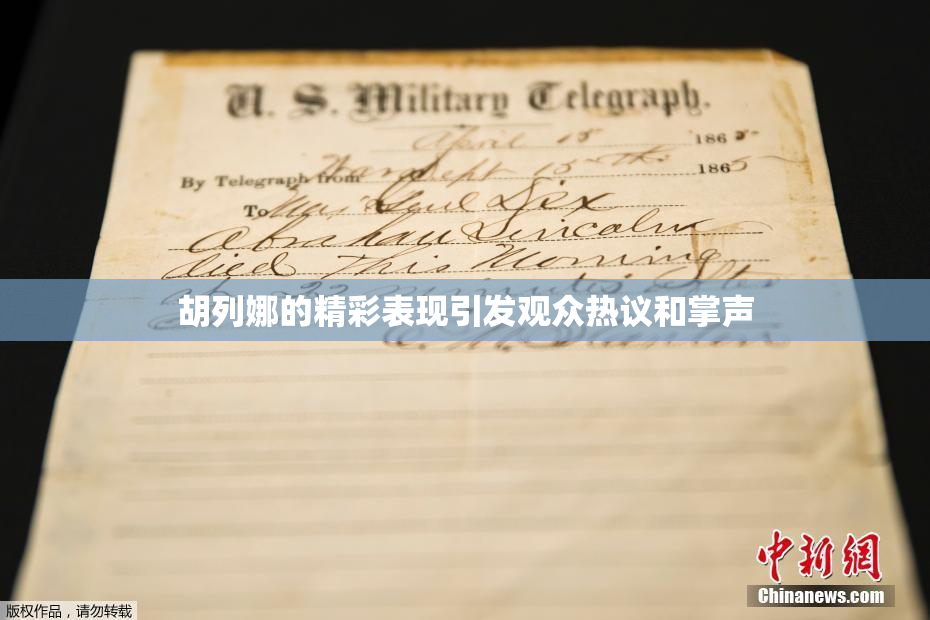 U. S. Military Telegraph.
April 15 1865
By Telegraph from War Dept 15th 1865
To Maj Genl Dix
Abraham Lincoln
died This Morning
22 minutes after
胡列娜的精彩表现引发观众热议和掌声
E. M. Stanton
中新网
Chinanews.com
版权作品，请勿转载